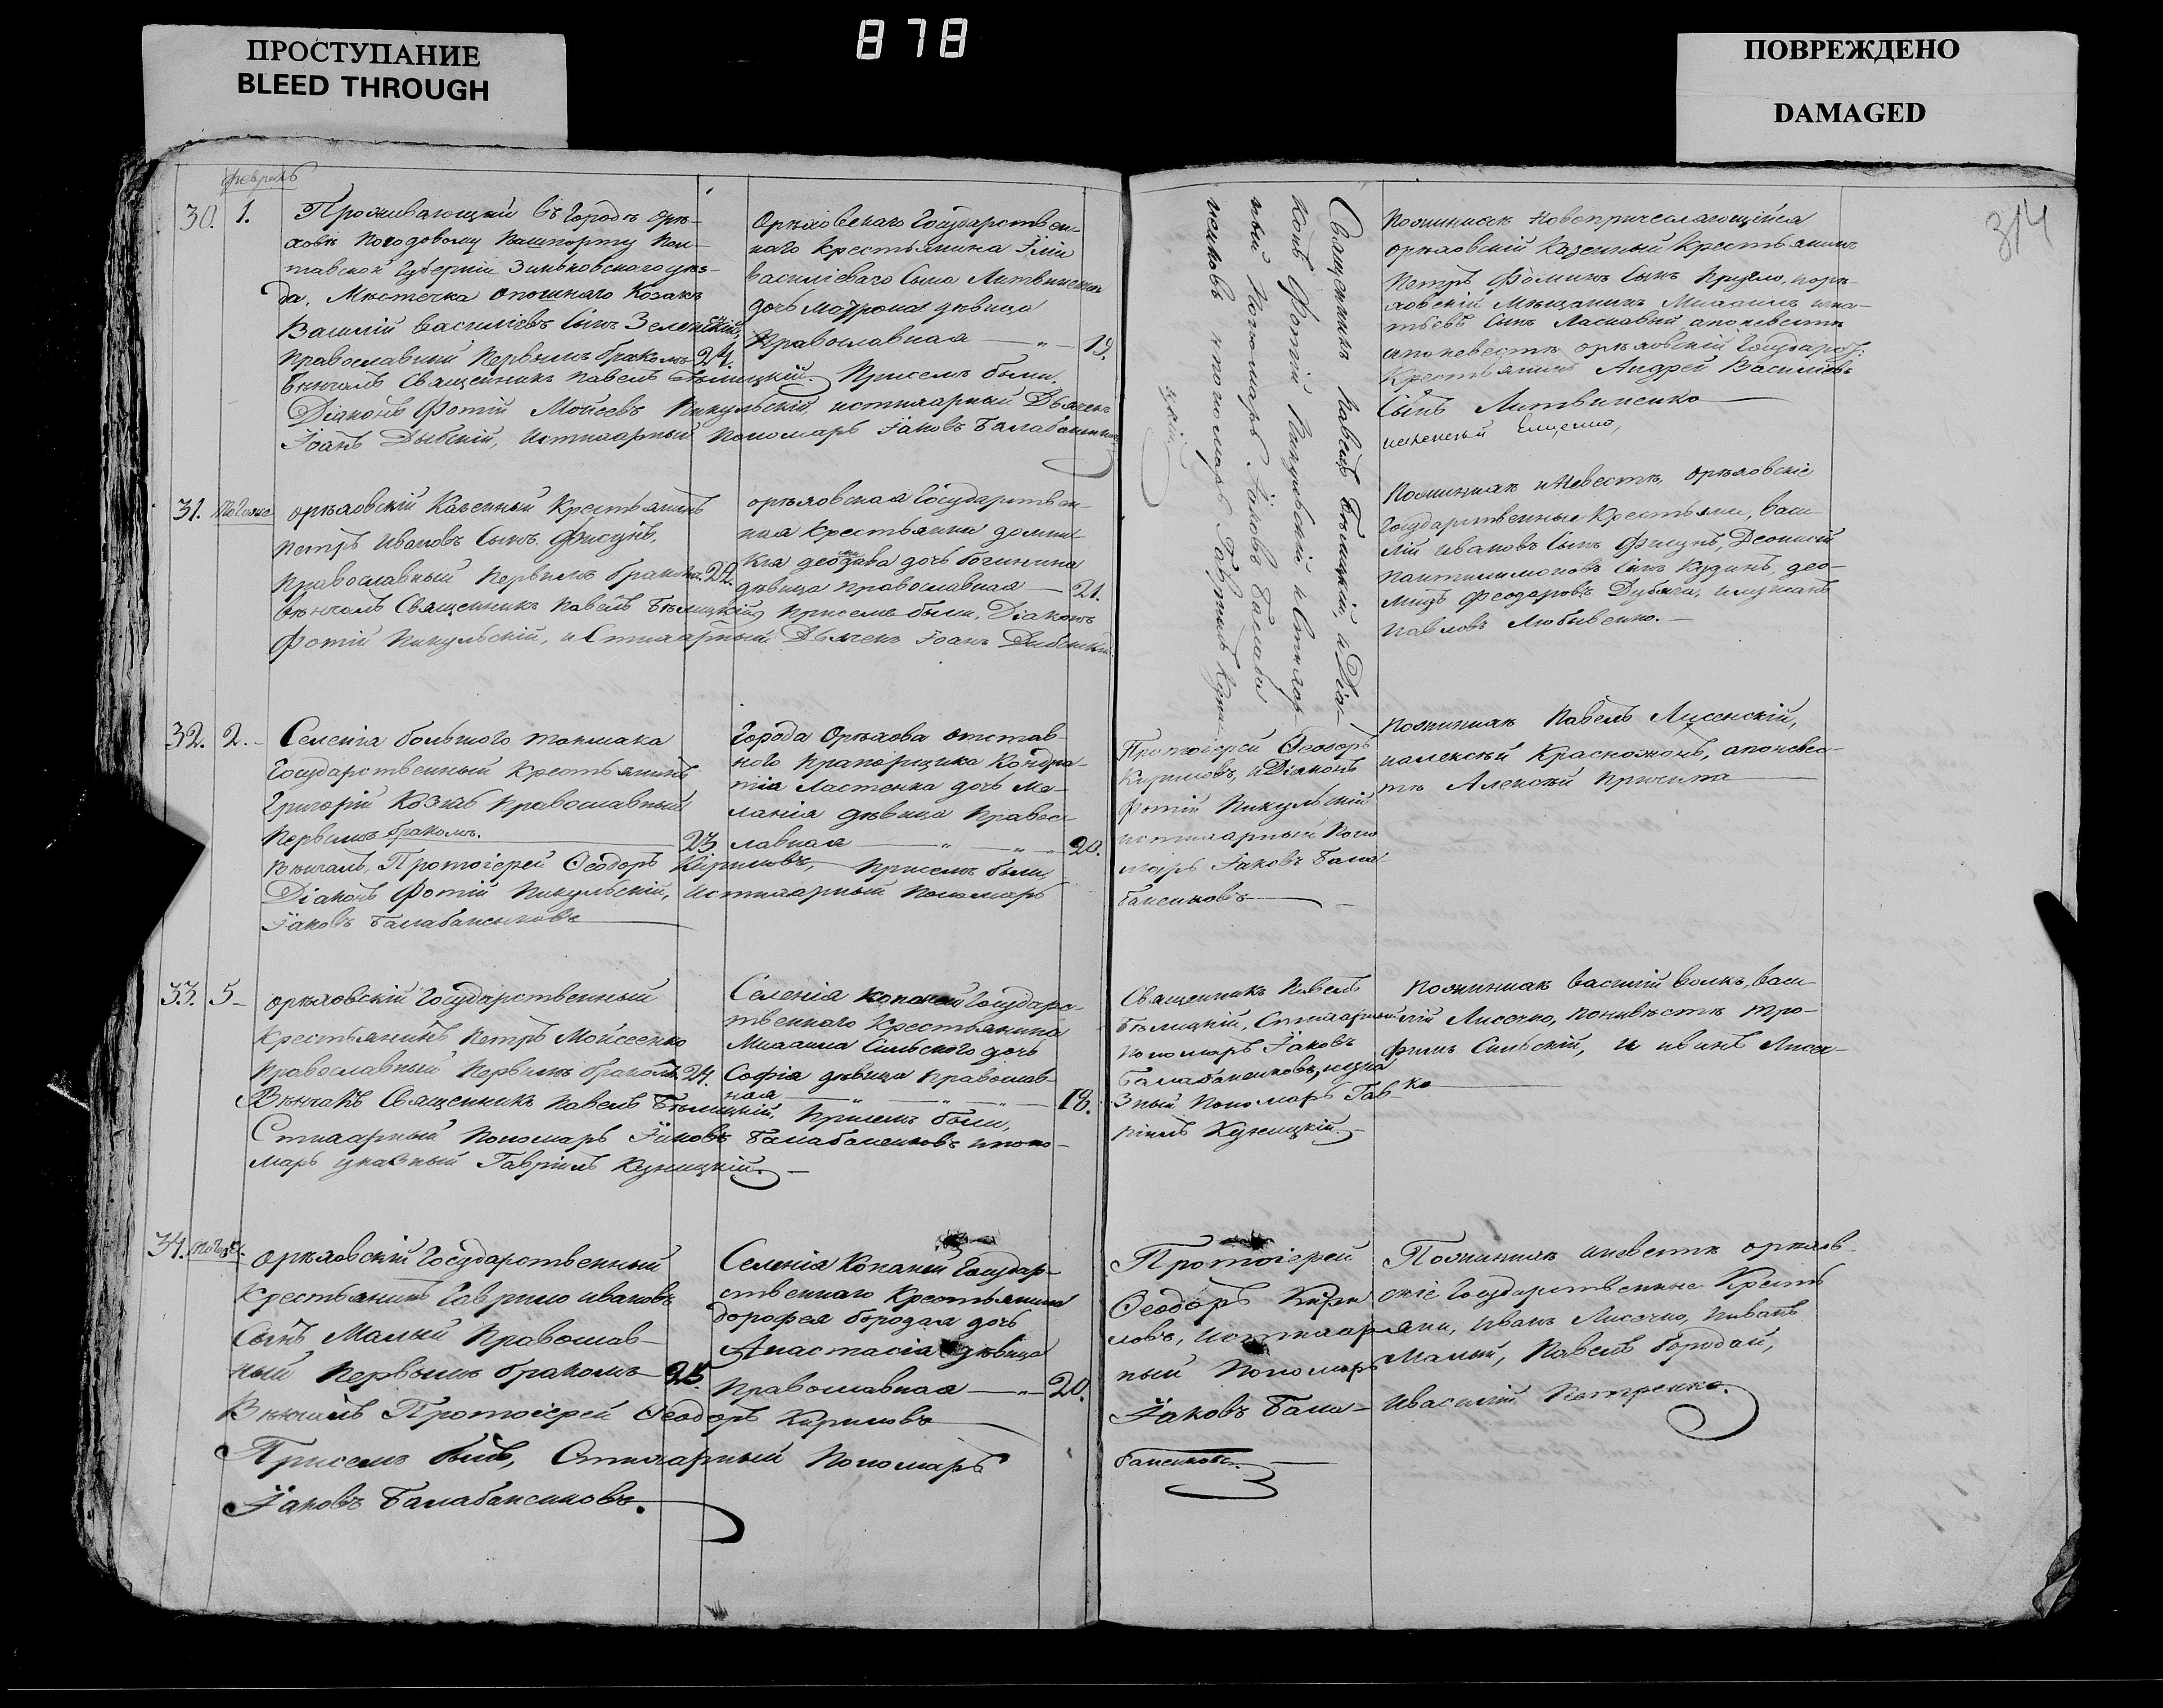 878
ПРОСТУПАНИЕ
BLEED THROUGH
ПОВРЕЖДЕНО
DAMAGED
314
февраль
30. 1.
Проживающий въ Городѣ Орѣ-
ховѣ погодовому пашпорту Пол-
тавской Губерніи Зиньковского уѣз-
да, Мѣстечка Опошнаго Козакъ
Василій Васильевъ Сынъ Зеленскій,
Православный первымъ бракомъ 24.
Вѣнчалъ Священникъ Павелъ Бѣлицкій. Присемъ были,
Діаконъ Фотій Моисеевъ Пикульскій, истихарный Дьячекъ
Іоанъ Дыбскій, Истихарный Пономарь Іаковъ Балабаненковъ
Орѣховскаго Государствен-
наго Крестьянина Іліи
Василіеваго Сына Литвиненка
дочь Матрона дѣвица
Православная — „ — 19.
Священникъ Павелъ Бѣлицкій, и Діа-
конъ Фотій Пикульский и Стихар-
ный Пономарь Іаковъ Балаба
ненковъ и пономарь Гавріилъ Куни-
цкій
Поженихѣ новопричесляющійся
орѣховскій Казенный Крестьянинъ
Петръ Фоминъ Сынъ
ховскій Мѣщанинъ Михаилъ Игна-
тьевъ Сынъ Ласкавый апоневестѣ
орѣховскій Государст:
Крестьянинъ Андрей Василіевъ
Сынъ Литвиненко
31. Тогоже
орѣховскій Казенный Крестьянинъ
Петръ Ивановъ Сынъ Фисунъ,
Православный первымъ бракомъ. 22.
Вѣнчалъ Священникъ Павелъ Бѣлицкій, Присемъ были, Діаконъ
Фотій Пикульскій, и Стихарный Дьячекъ Іоанъ Дыбскій.
орѣховская Государствен-
ная Крестьянка домни-
кія дочь
дѣвица православная — 21.
Поженихѣ и Невестѣ, Орѣховскіе
Государственные Крестьяне, Васи-
лій Ивановъ Сынъ Фисунъ, Леонтій
Пантилимоновъ Сынъ Кудинъ, део-
мидъ Феодоровъ
Павловъ Любивенко.
32. 2.
Селенія большого токмака
Государственный Крестьянинъ
Григорій Козкаъ Православный
Первымъ бракомъ. 23
Вѣнчалъ, Протоіерей Ѳеодоръ Кириловъ, присемъ были,
Діаконъ Фотій Пикульскій, истихарный Пономарь
Іаковъ Балабаненковъ
Города Орѣхова отстав-
ного Прапорщика Кондра-
тія Ластенка дочь Ме-
ланія дѣвица Правос-
лавная — „ — „ — 20.
Протоіерей Ѳеодоръ
Кириловъ, и Діаконъ
Фотій Пикульскій
истихарный Поно
марь Іаковъ Бала
баненковъ
Поженихѣ Павелъ Лисенскій,
иалексѣй Красножонъ, апоневес-
тѣ Алексѣй Причина
33. 5
Орѣховскій Государственный
Крестьянинъ Петръ Мойсеенко
Православный Первымъ бракомъ. 24.
Вѣнчалъ Священникъ Павелъ Бѣлицкій, Присемъ были,
Стихарный Пономарь Іаковъ Балабаненковъ ипоно-
марь указный Гавріилъ Куницкій.
Селенія Копаней Государс-
твенного Крестьянина
Михаила Сильского дочь
Софія дѣвица православ-
ная — „ — „ — „ — 18.
Священникъ Павелъ
Бѣлицкій, Стихарный
Пономарь Іаковъ
Балабаненковъ, иука
зный Пономарь Гав
ріилъ Куницкій.
Поженихѣ Василій Волкъ, Васи-
лій Лисечко, Поневѣстѣ Тро-
фимъ Сильскій, и Иванъ Лисеч-
ко
34. Тогожъ.
Орѣховскій Государственный
Крестьянинъ Гаврило Ивановъ
Сынъ Малый Православ-
ный Первымъ бракомъ 25.
Вѣнчалъ Протоіерей Ѳеодоръ Кириловъ
Присемъ былъ, Стихарный Пономарь
Іаковъ Балабаненковъ.
Селенія Копаней Государ-
ственнаго Крестьянина
дорофея бородая дочь
Анастасія дѣвица
Православная — „ — 20.
Протоіерей
Ѳеодоръ Кири
ловъ, истихар
ный Пономарь
Іаковъ Бала-
баненковъ.
Поженихѣ иневестѣ орѣхов-
скіе Государственные Кресть
яни, Иванъ Лисечко, Иванъ
Малый, Павелъ Бородай,
иВасилій Петренко.